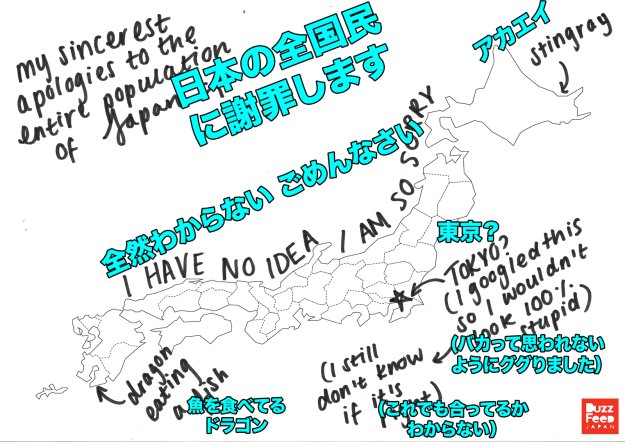 my sincerest
apologies to the
entire population
of Japan
日本の全国民
に謝罪します
アカエイ
stingray
全然わからない ごめんなさい
I HAVE NO IDEA I AM SO SORRY
東京？
TOKYO?
(I googled this
so I wouldn't
look 100%
stupid)
(バカって思われない
ようにググりました)
(I still
don't know
if it's
right)
(これでも合ってるか
わからない)
dragon
eating
a fish
魚を食べてる
ドラゴン
BUZZ
FEED
JAPAN